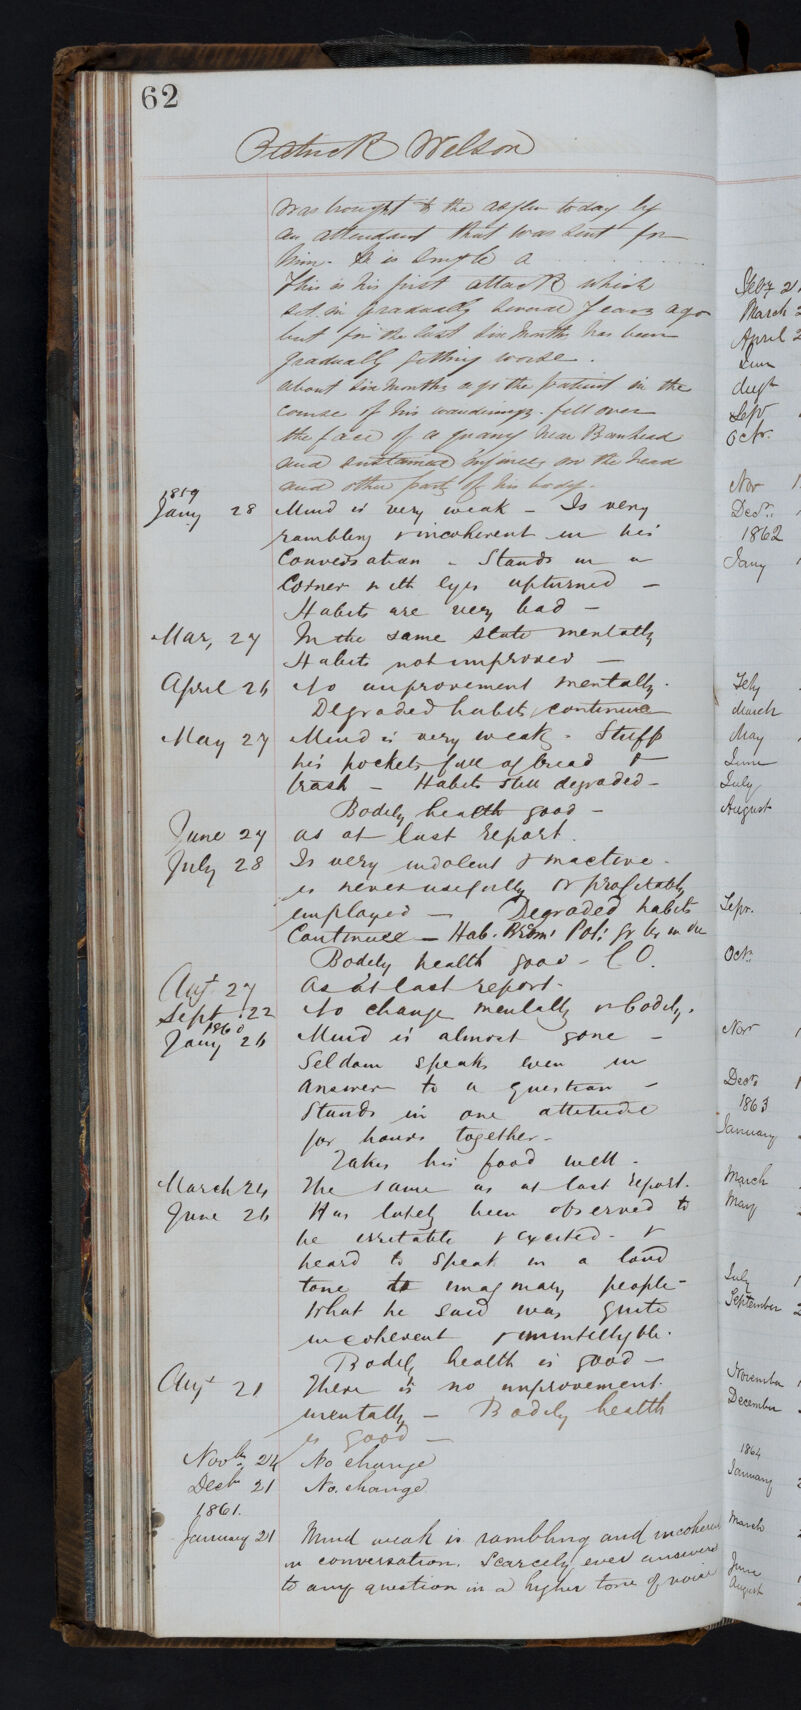 62
Patrick Wilson
was brought to the asylum today by
an attendant that was sent for
him. He is single a
This is his first attack which
set in gradually several years ago
but for the last six months has been
gradually getting worse.
about six months ago the patient in the
course of his wanderings fell over
the face of a quarry near Bonhead
and sustained injuries on the head
and other parts of his body.
1859
Jany 28 Mind is very weak - Is very
rambling & incoherent in his
Conversation - Stands in a
Corner with eyes upturned -
Habits are very bad -
Mar, 27 In the same state mentally
Habits not improved -
April 26 No improvement mentally.
Degraded habits continue
May 27 Mind is very weak. Stuffs
his pockets full of bread &
trash - Habits still degraded -
Bodily health good -
June 27 as at last report.
July 28 Is very indolent & inactive -
is never usefully or profitably
employed - Degraded habits
Continue - Hab. Brom: Pot: gr
Bodily health good - C O.
Augt 27 As at last report.
Sept. 22 No change mentally or bodily.
1860
Jany 26 Mind is almost gone -
Seldom speaks even in
answer to a question -
Stands in one attitude
for hours together -
Takes his food well -
March 24 The same as at last report.
June 26 Has lately been observed to
be irritable & excited - &
heard to speak in a loud
tone to imaginary people -
What he said was quite
incoherent & unintelligible.
Bodily health is good -
Augt 21 There is no improvement
mentally - Bodily health
is good -
Novbr 24 No change
Decbr 21 No. change
1861.
January 21 Mind weak is rambling and incoherent
in conversation. Scarcely ever answers
to any question in a higher tone of voice
Feby 2
March 2
April 2
June
Augt
Sept
Octr.
Nov 1
Decr. 1
1862
Jany 1
Feby
March
May
June
July
August
Sepr.
Octr.
Nov 1
Decr. 1
1863
January
March
May
July 1
September 2
November 1
December
1864
January
March
June
August